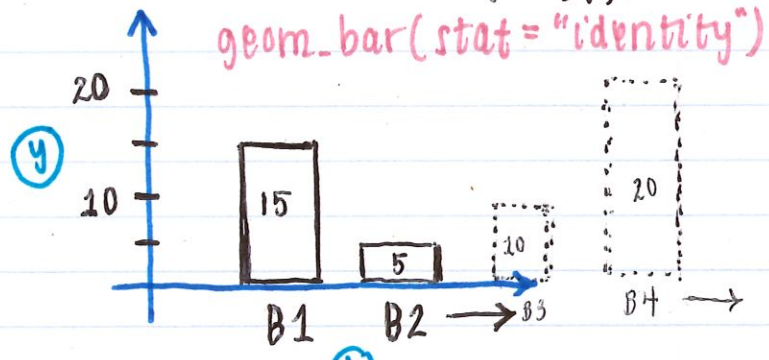 geom_bar(stat = "identity")
20
y
10
15
5
10
20
B1 B2 B3 B4